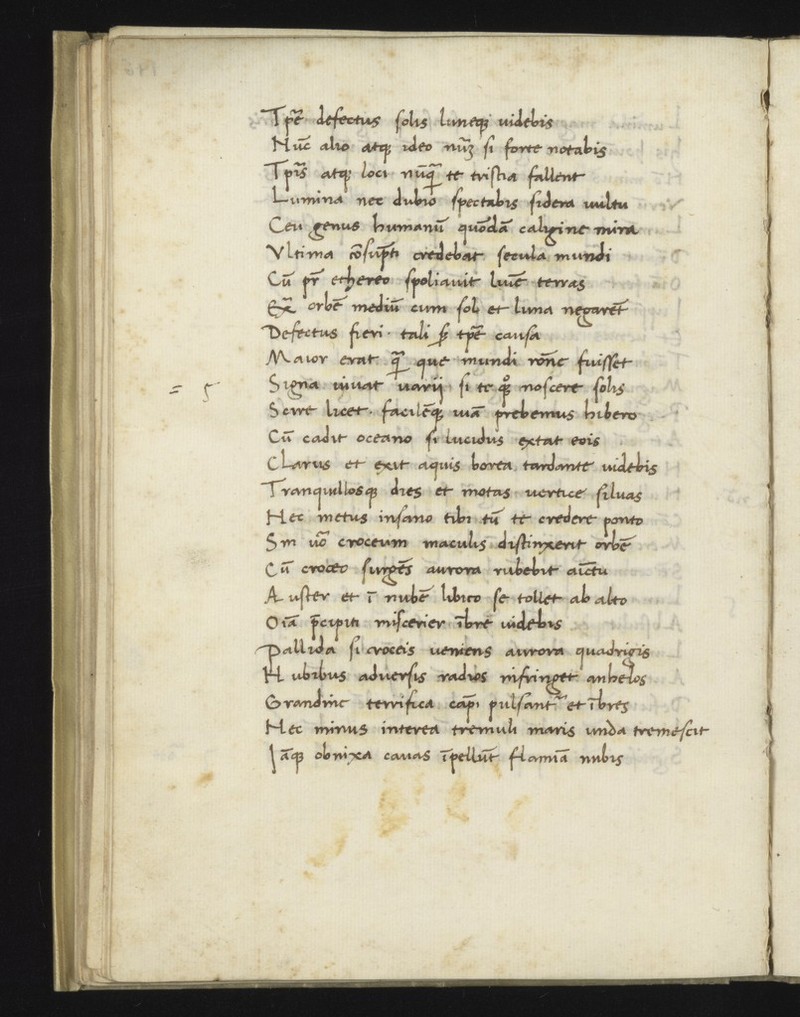 Tp̄e defectus solis luneqꝫ uidebis
Nūc alio atqꝫ ideo nūꝫ si forte notabis
Tp̄is atqꝫ loci nūq̄ te tristia fallent
Lumina nec dubio spectabis sidera uultu
Ceu genus humanū quōdā caligine mira
Vltima cōsūpti credebat secula mundi
Cū pr̄ ethereo spoliauit lūīe terras
orbē mediū cum sol et luna negarēt
Defectus fieri· tali tp̄e causa
Maior erat q̄ que mundi rōnē fuisset
Signa uarii si te noscere solis
= 5
Scire licet· facilēqꝫ uiā prebemus hibero
Cū cadit oceano si lucidus extat eois
Clarus et exit aquis borea tardante uidebis
Tranquillosqꝫ dies et motas uertice siluas
Nec metus insano tibi tū te credere ponto
Sin uō croceum maculis distinxerit orbē
Cū croceo surgēs aurora rubebit aīctu
Auster et ī nubē libico se tollet ab alto
Oīa p̄cipiti miscerier ībre uidebis
Pallida si croceis ueniens aurora quadrigis
Nubibus aduersis radios infringet anhelos
Grandine terrifica capī pulsant᷑ et ībres
Nec minus interea tremuli maris unda tremescit
Iāqꝫ obnixa cauas īpellūt flamīa nubis